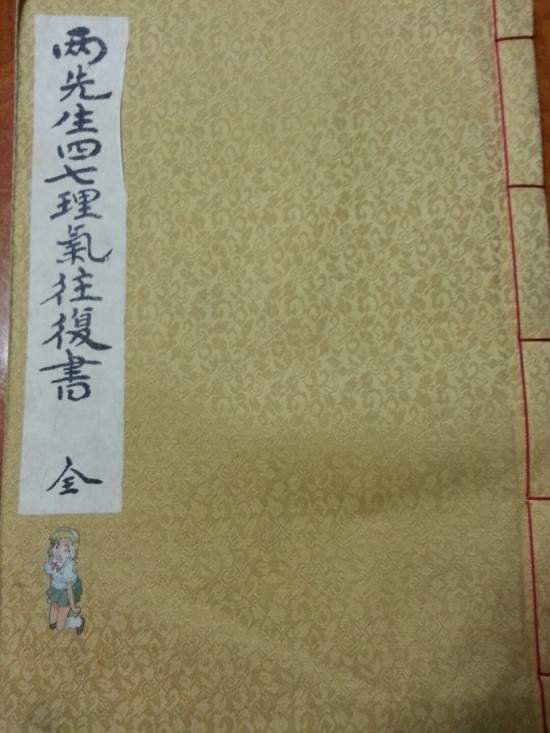 两先生四七理氣往復書 全